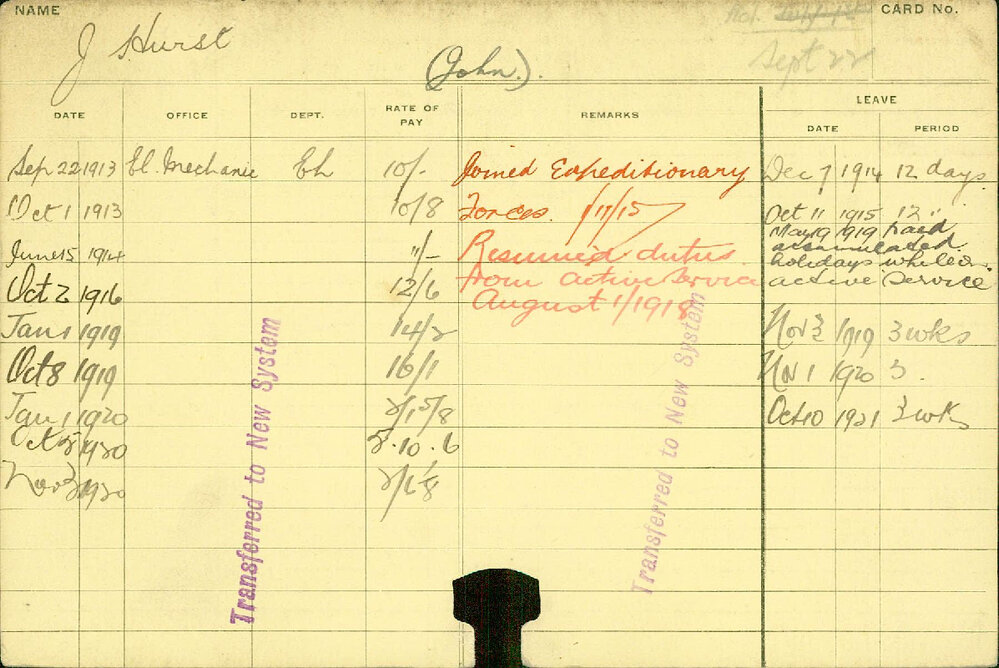 NAME
CARD No.
J Hurst
(John.).
Sept 22
DATE OFFICE DEPT. RATE OF PAY REMARKS LEAVE
DATE PERIOD
Sep 22 1913 El. Mechanic Eh 10/- Joined Expeditionary Dec 7 1914 12 days
Oct 1 1913 10/8 Forces. 1/11/15 Oct 11 1915 12 "
May 19 1919 paid
June 15 1914 11/- Resumed duties accumulated
holidays while on
Oct 2 1916 12/6 from active service active service
August 1/1918
Jan 1 1919 14/2 Nov 3 1919 3 wks
Oct 8 1919 16/1 Nov 1 1920 3.
Jan 1 1920 Oct 10 1921 3 wks
1920 10.6
Nov 1920
Transferred to New System
Transferred to New System